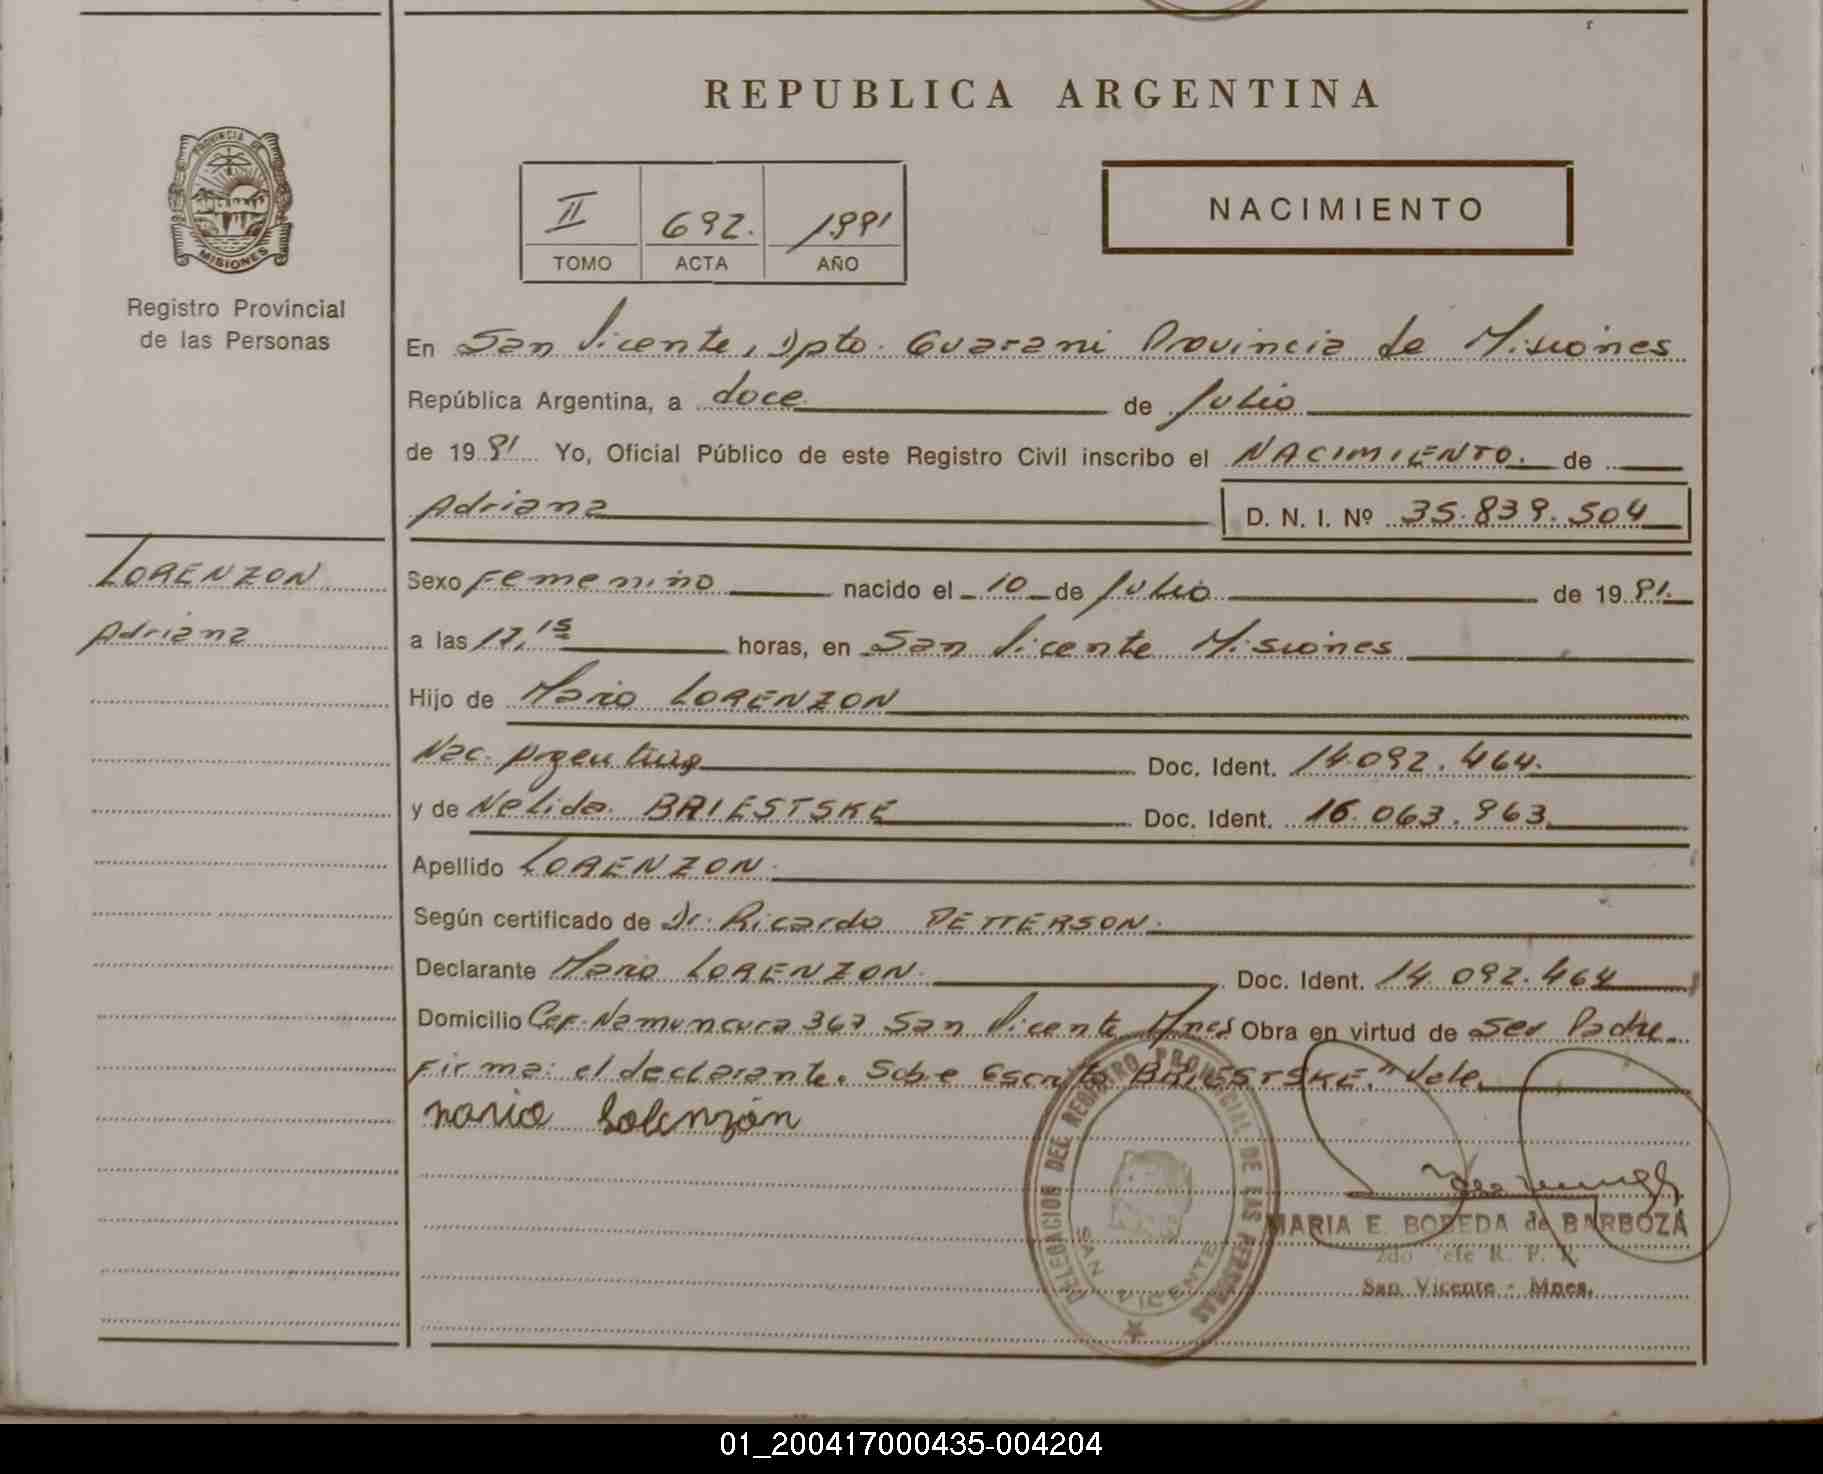 REPUBLICA ARGENTINA
PROVINCIA DE
MISIONES
Registro Provincial
de las Personas
II 692. 1991
TOMO ACTA AÑO
NACIMIENTO
En San Vicente, Dpto. Guarani Provincia de Misiones
República Argentina, a doce de Julio
de 1991 Yo, Oficial Público de este Registro Civil inscribo el NACIMIENTO. de
Adriana
D. N. I. Nº 35.839.504
LORENZON
Adriana
Sexo Femenino nacido el 10 de Julio de 1991.
a las 17,15 horas, en San Vicente Misiones
Hijo de Mario LORENZON
Nac. Argentina Doc. Ident. 14.092.464.
y de Nelida BRIESTSKE Doc. Ident. 16.063.963
Apellido LORENZON.
Según certificado de Dr. Ricardo PETTERSON.
Declarante Mario LORENZON. Doc. Ident. 14.092.464
Domicilio Cef. Namuncura 367 San Vicente Mnes Obra en virtud de ser Padre.
Firma: el declarante. Sobre Escrito BRIESTSKE." Vale.
Mario Lorenzón
DELEGACION DEL REGISTRO PROVINCIAL DE LAS PERSONAS
SAN VICENTE
MARIA E. BOBEDA de BARBOZA
2do Jefe R. P. P.
San Vicente - Mnes.
01_200417000435-004204